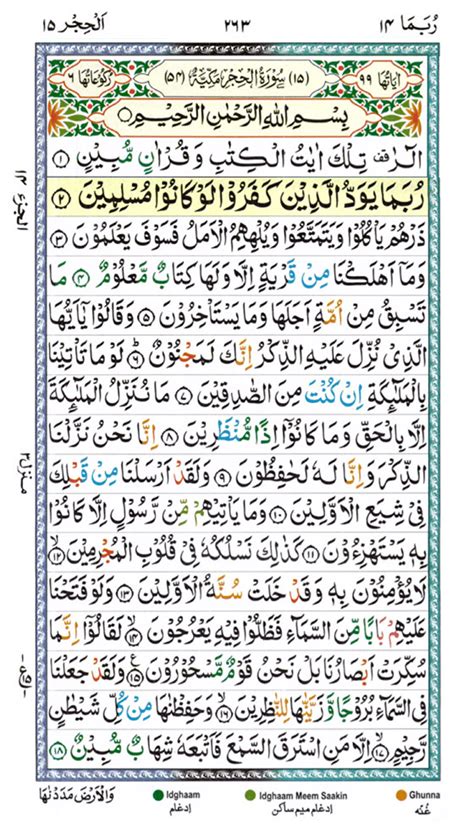 رُبَمَا ١٤
٢٦٣
اَلْحِجْر ١٥
اٰيَاتُهَا ٩٩
(١٥) سُوْرَةُ الْحِجْرِ مَكِّيَّةٌ (٥٤)
رُكُوْعَاتُهَا ٦
بِسْمِ اللّٰهِ الرَّحْمٰنِ الرَّحِيْمِ
الٓرٰ تِلْكَ اٰيٰتُ الْكِتٰبِ وَ قُرْاٰنٍ مُّبِيْنٍ ١
رُبَمَا يَوَدُّ الَّذِيْنَ كَفَرُوْا لَوْ كَانُوْا مُسْلِمِيْنَ ٢
ذَرْهُمْ يَاْكُلُوْا وَيَتَمَتَّعُوْا وَيُلْهِهِمُ الْاَمَلُ فَسَوْفَ يَعْلَمُوْنَ ٣
وَمَاۤ اَهْلَكْنَا مِنْ قَرْيَةٍ اِلَّا وَلَهَا كِتَابٌ مَّعْلُوْمٌ ٤ مَا
تَسْبِقُ مِنْ اُمَّةٍ اَجَلَهَا وَمَا يَسْتَاْخِرُوْنَ ٥ وَقَالُوْا يٰۤاَيُّهَا
الَّذِيْ نُزِّلَ عَلَيْهِ الذِّكْرُ اِنَّكَ لَمَجْنُوْنٌ ٦ لَوْ مَا تَاْتِيْنَا
بِالْمَلٰٓئِكَةِ اِنْ كُنْتَ مِنَ الصّٰدِقِيْنَ ٧ مَا نُنَزِّلُ الْمَلٰٓئِكَةَ
اِلَّا بِالْحَقِّ وَمَا كَانُوْۤا اِذًا مُّنْظَرِيْنَ ٨ اِنَّا نَحْنُ نَزَّلْنَا
الذِّكْرَ وَاِنَّا لَهٗ لَحٰفِظُوْنَ ٩ وَلَقَدْ اَرْسَلْنَا مِنْ قَبْلِكَ
فِيْ شِيَعِ الْاَوَّلِيْنَ ١٠ وَمَا يَاْتِيْهِمْ مِّنْ رَّسُوْلٍ اِلَّا كَانُوْا
بِهٖ يَسْتَهْزِءُوْنَ ١١ كَذٰلِكَ نَسْلُكُهٗ فِيْ قُلُوْبِ الْمُجْرِمِيْنَ ١٢
لَا يُؤْمِنُوْنَ بِهٖ وَقَدْ خَلَتْ سُنَّةُ الْاَوَّلِيْنَ ١٣ وَلَوْ فَتَحْنَا
عَلَيْهِمْ بَابًا مِّنَ السَّمَآءِ فَظَلُّوْا فِيْهِ يَعْرُجُوْنَ ١٤ لَقَالُوْۤا اِنَّمَا
سُكِّرَتْ اَبْصَارُنَا بَلْ نَحْنُ قَوْمٌ مَّسْحُوْرُوْنَ ١٥ وَلَقَدْ جَعَلْنَا
فِي السَّمَآءِ بُرُوْجًا وَّزَيَّنّٰهَا لِلنّٰظِرِيْنَ ١٦ وَحَفِظْنٰهَا مِنْ كُلِّ شَيْطٰنٍ
رَّجِيْمٍ ١٧ اِلَّا مَنِ اسْتَرَقَ السَّمْعَ فَاَتْبَعَهٗ شِهَابٌ مُّبِيْنٌ ١٨
وَالْاَرْضَ مَدَدْنٰهَا
Idghaam
ادغام
Idghaam Meem Saakin
ادغام میم ساکن
Ghunna
غُنّه
منزل ٣